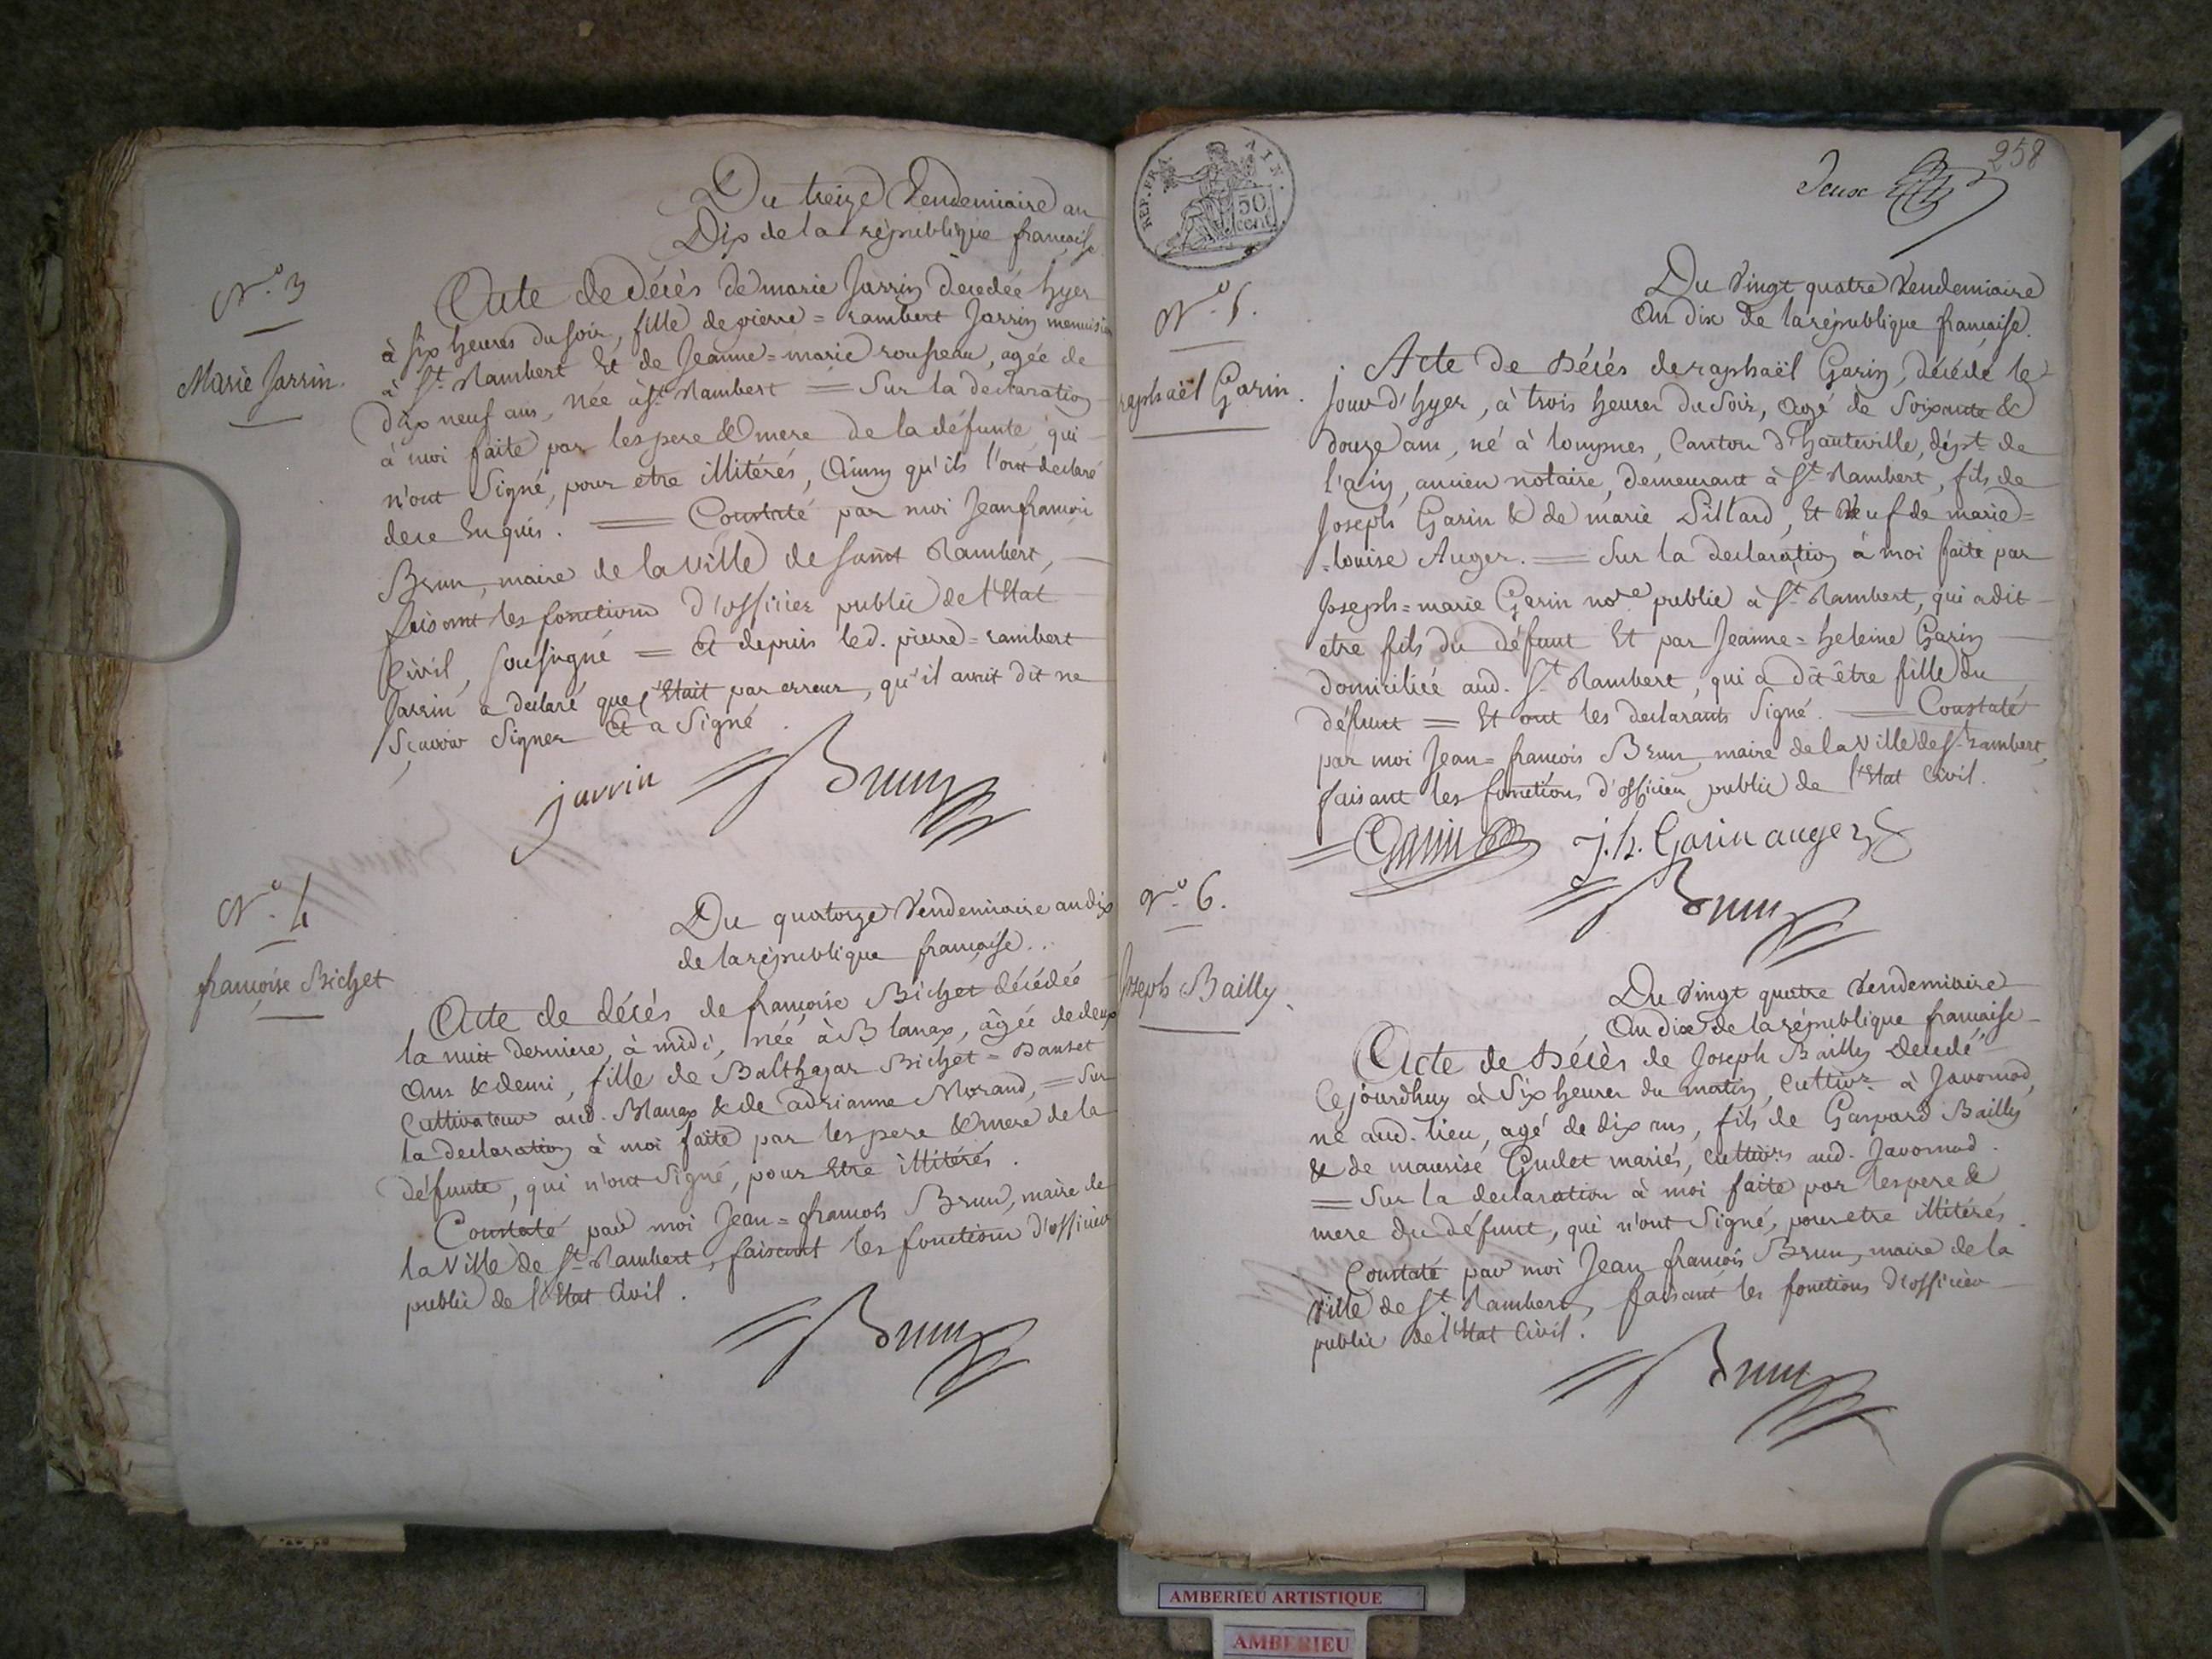 Du treize Vendemiaire an
Dix de la république française
N.º 3
Marie Jarrin.
Acte de décès de marie Jarrin décédée hyer
à six heures du soir, fille de pierre = rambert Jarrin menuisier
à St. Rambert et de Jeanne = marie rousseau, agée de
dix neuf ans, née à St. Rambert = Sur la declaration
à moi faite par les pere & mere de la défunte, qui
n'ont Signé, pour etre illitérés, Ainsy qu'ils l'ont declaré
de ce Enquis. = Constaté par moi Jean françois
Brun, maire de la ville de saint Rambert,
faisant les fonctions d'officier public de l'Etat
Civil, soussigné = et depuis led. pierre = rambert
Jarrin a declaré que c'Etait par erreur, qu'il avait dit ne
sçavoir signer et a Signé.
jarrin Brun
N.º 4
françoise Bichet
Du quatorze Vendemiaire an dix
de la république française..
Acte de décés de françoise Bichet décédée
la nuit derniere, à midi, née à Blanax, âgée de deux
ans & demi, fille de Balthazar Bichet = Danset
Cultivateur aud. Blanax & de adrianne Morand, = Sur
la declaration à moi faite par les pere & mere de la
défunte, qui n'ont signé, pour Etre illitérés.
Constaté par moi Jean = françois Brun, maire de
la ville de St. Rambert, faisant les fonctions d'officier
public de l'Etat Civil.
Brun
REP. FRA AIN.
50
cent.
258
Deux
N.º 5.
raphaël Garin.
Du Vingt quatre Vendemiaire
An dix de la république française.
Acte de Décés de raphaël Garin, décédé le
jour d'hyer, à trois heures du soir, agé de soixante &
douze ans, né à lompnes, Canton d'hauteville, dépt. de
l'ain, ancien notaire, demeurant à St. Rambert, fils de
Joseph Garin & de marie Sillard, et Veuf de marie =
= louise Auger. = Sur la declaration à moi faite par
Joseph = marie Garin nore public à St. Rambert, qui a dit
etre fils du défunt Et par Jeanne = heleine Garin
domiciliée aud. St. Rambert, qui a dit être fille du
défunt = Et ont les declarants signé. = Constaté
par moi Jean = françois Brun, maire de la ville de St. rambert,
faisant les fonctions d'officier public de l'Etat Civil.
Garin j. h. Garin auger
Brun
N.º 6.
Joseph Bailly.
Du Vingt quatre Vendemiaire
An dix de la république française
Acte de Décès de Joseph Bailly Decedé
Cejourdhuy à Six heures du matin, Cultivr. à Javornod,
né aud. lieu, agé de dix ans, fils de Gaspard Bailly
& de maurise Guilet mariés, cultivrs aud. Javornod.
= Sur la declaration à moi faite par les pere &
mere du défunt, qui n'ont Signé, pour etre illitérés.
Constaté par moi Jean françois Brun, maire de la
Ville de St. Rambert, faisant les fonctions d'officier
public de l'Etat Civil.
Brun
AMBERIEU ARTISTIQUE
AMBERIEU